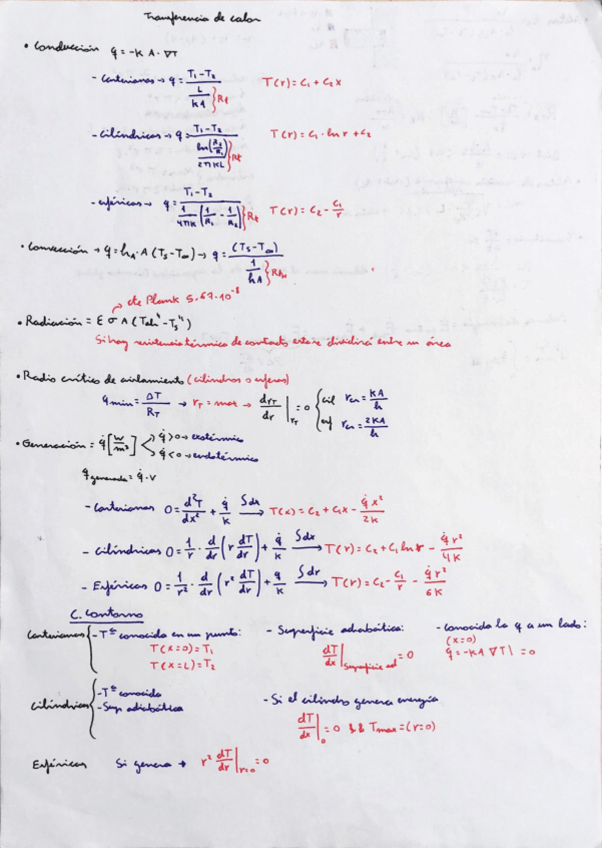 Transferencia de calor
• Conducción q = -K A · ∇T
- Cartesianas → q = (T₁ - T₂) / (L / kA) } Rt T(r) = C₁ + C₂ x
- Cilíndricas → q = (T₁ - T₂) / (ln(R₂/R₁) / 2πKL) } Rt T(r) = C₁ · ln r + C₂
- esféricas → q = (T₁ - T₂) / (1/4πK [1/R₁ - 1/R₂]) } Rt T(r) = C₂ - C₁/r
• Convección → q = hA · A (Ts - T∞) → q = (Ts - T∞) / (1 / hA) } Rt
→ cte Plank 5.67·10⁻⁸
• Radiación = E σ A (Talr⁴ - Ts⁴)
Si hay resistencia térmica de contacto esta se dividirá entre un área
• Radio crítico de aislamiento (cilindros o esferas)
qmin = ΔT / RT → rT = max → drT/dr |rT = 0 { cil rcr = KA/h
esf rcr = 2KA/h
• Generación = q̇ [W/m³] q̇ > 0 → exotérmico
q̇ < 0 → endotérmico
q generada = q̇ · V
- Cartesianas 0 = d²T/dx² + q̇/K ∫dx → T(x) = C₂ + C₁x - q̇x²/2K
- Cilíndricas 0 = 1/r · d/dr (r dT/dr) + q̇/K ∫dx → T(r) = C₂ + C₁ ln r - q̇r²/4K
- Esféricas 0 = 1/r² · d/dr (r² dT/dr) + q̇/K ∫dr → T(r) = C₂ - C₁/r - q̇r²/6K
C. Contorno
Cartesianas { - Tª conocida en un punto: - Superficie adiabática: - Conocida la q a un lado:
T(x=0) = T₁ dT/dx |Superficie ad = 0 (x=0)
T(x=L) = T₂ q̇ = -KA ∇T| = 0
Cilíndricas { - Tª conocida - Si el cilindro genera energía
- Sup adiabática dT/dx |₀ = 0 && Tmax = (r=0)
Esféricas Si genera → r² dT/dr |r=0 = 0